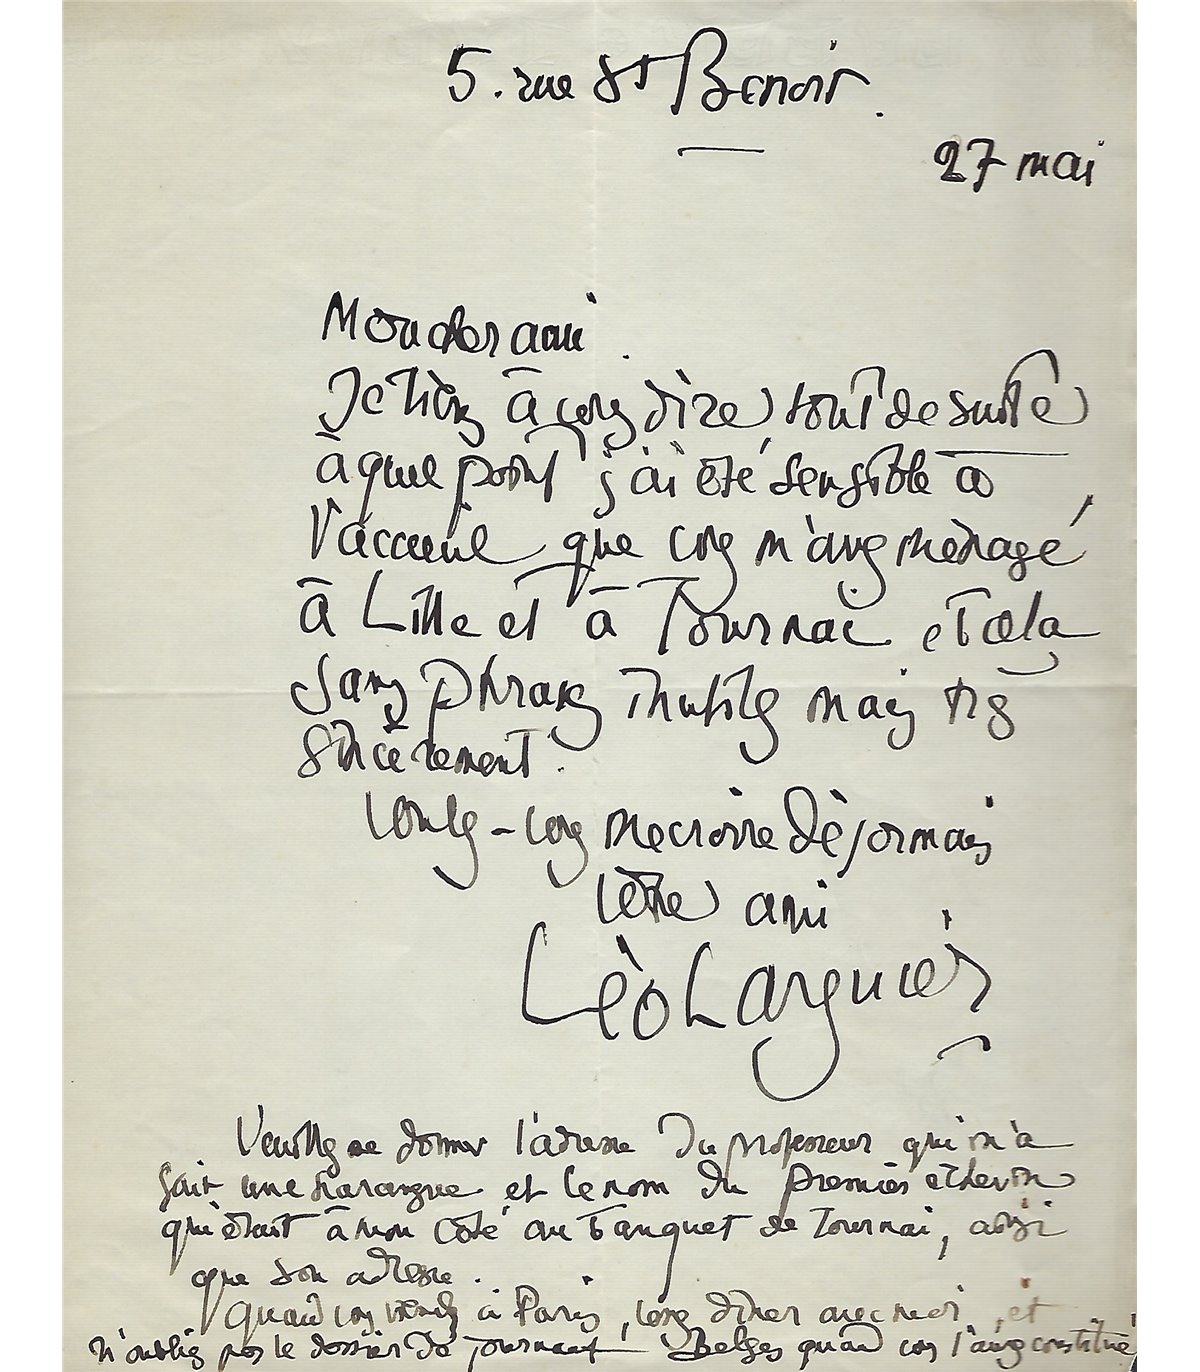 5. rue St Benoit.
27 mai
Mon cher ami.
Je tiens à vous dire tout de suite
à quel point j'ai été sensible à
l'accueil que vous m'avez ménagé
à Lille et à Tournai et cela
sans phrases inutiles mais très
sincèrement.
Voulez-vous me croire désormais
votre ami
Léo Larguier
Veuillez me donner l'adresse du professeur qui m'a
fait une harangue et le nom du premier échevin
qui était à mon côté au banquet de Tournai, ainsi
que son adresse.
Quand vous viendrez à Paris, venez dîner avec moi, et
n'oubliez pas le dossier de journaux Belges quand vous l'aurez constitué